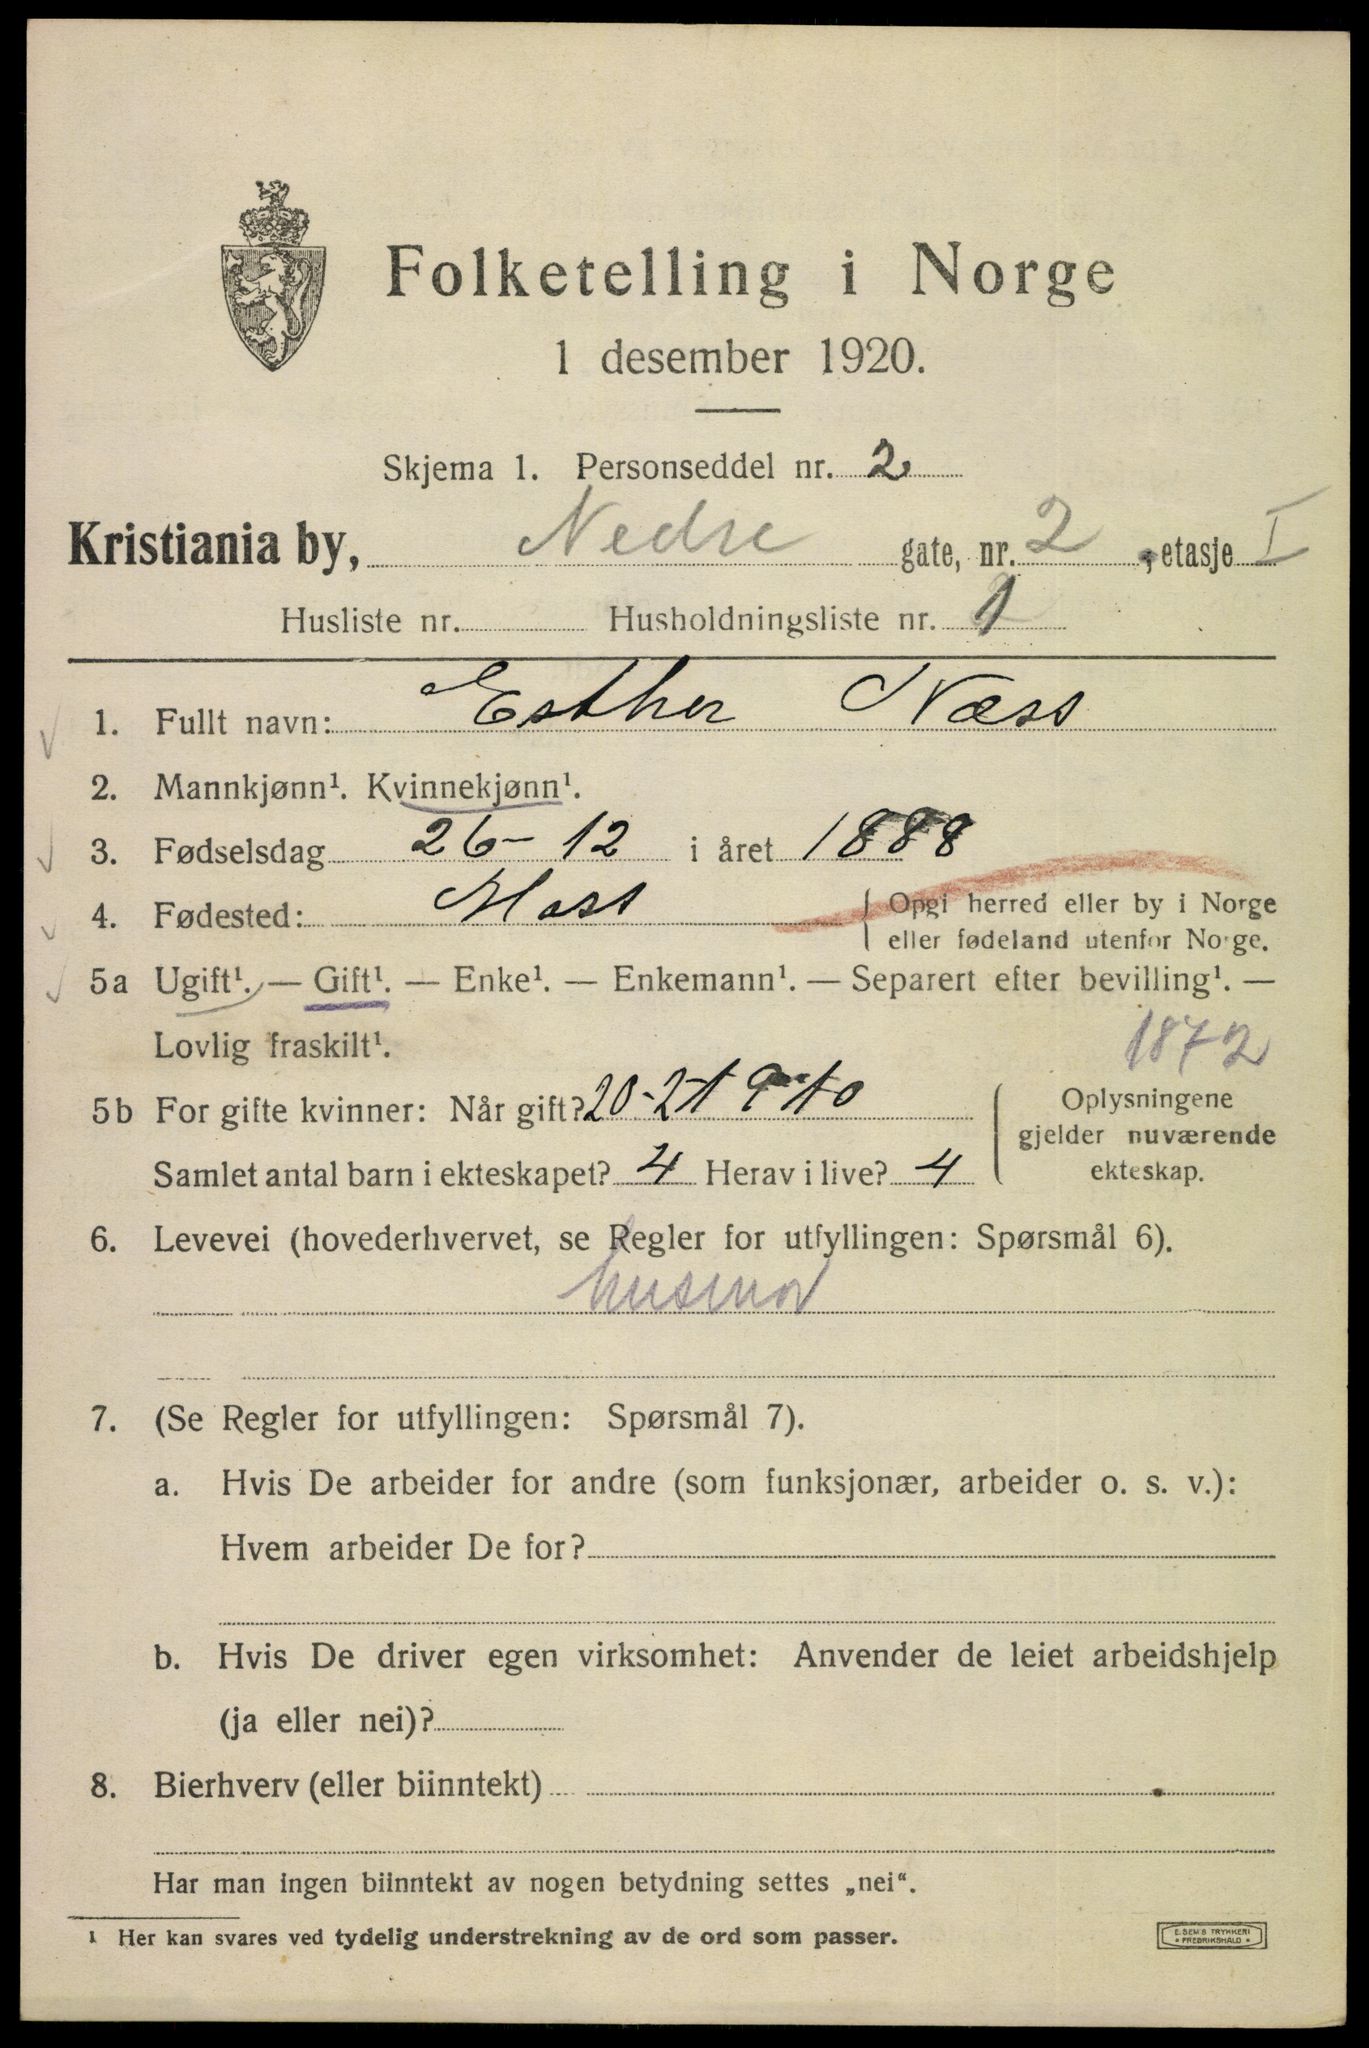 Folketelling i Norge
1 desember 1920.
Skjema 1. Personseddel nr. 2
Kristiania by, Nedre gate, nr. 2, etasje I
Husliste nr. Husholdningsliste nr. 1
1. Fullt navn: Esther Næss
2. Mannkjønn¹. Kvinnekjønn¹.
3. Fødselsdag 26-12 i året 1888
4. Fødested: Moss { Opgi herred eller by i Norge
eller fødeland utenfor Norge.
5a Ugift¹. — Gift¹. — Enke¹. — Enkemann¹. — Separert efter bevilling¹. —
Lovlig fraskilt¹. 1872
5b For gifte kvinner: Når gift? 20-2-1910 { Oplysningene
gjelder nuværende
Samlet antal barn i ekteskapet? 4 Herav i live? 4 ekteskap.
6. Levevei (hovederhvervet, se Regler for utfyllingen: Spørsmål 6).
husmor
7. (Se Regler for utfyllingen: Spørsmål 7).
a. Hvis De arbeider for andre (som funksjonær, arbeider o. s. v.):
Hvem arbeider De for?
b. Hvis De driver egen virksomhet: Anvender de leiet arbeidshjelp
(ja eller nei)?
8. Bierhverv (eller biinntekt)
Har man ingen biinntekt av nogen betydning settes „nei“.
¹ Her kan svares ved tydelig understrekning av de ord som passer.
E. SEM'S TRYKKERI
• FREDRIKSHALD •